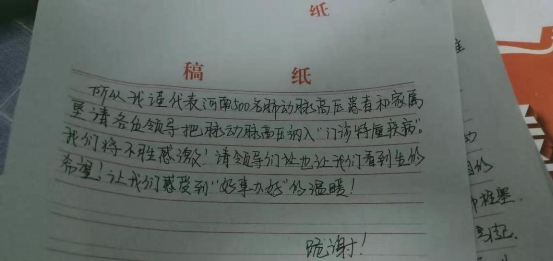 纸
稿 纸
所以我谨代表河南500名肺动脉高压患者和家属
恳请各位领导把肺动脉高压纳入"门诊特属疾病"。
我们将不胜感激!请领导们也让我们看到生的
希望!让我们感受到"好事办好"的温暖!
跪谢!